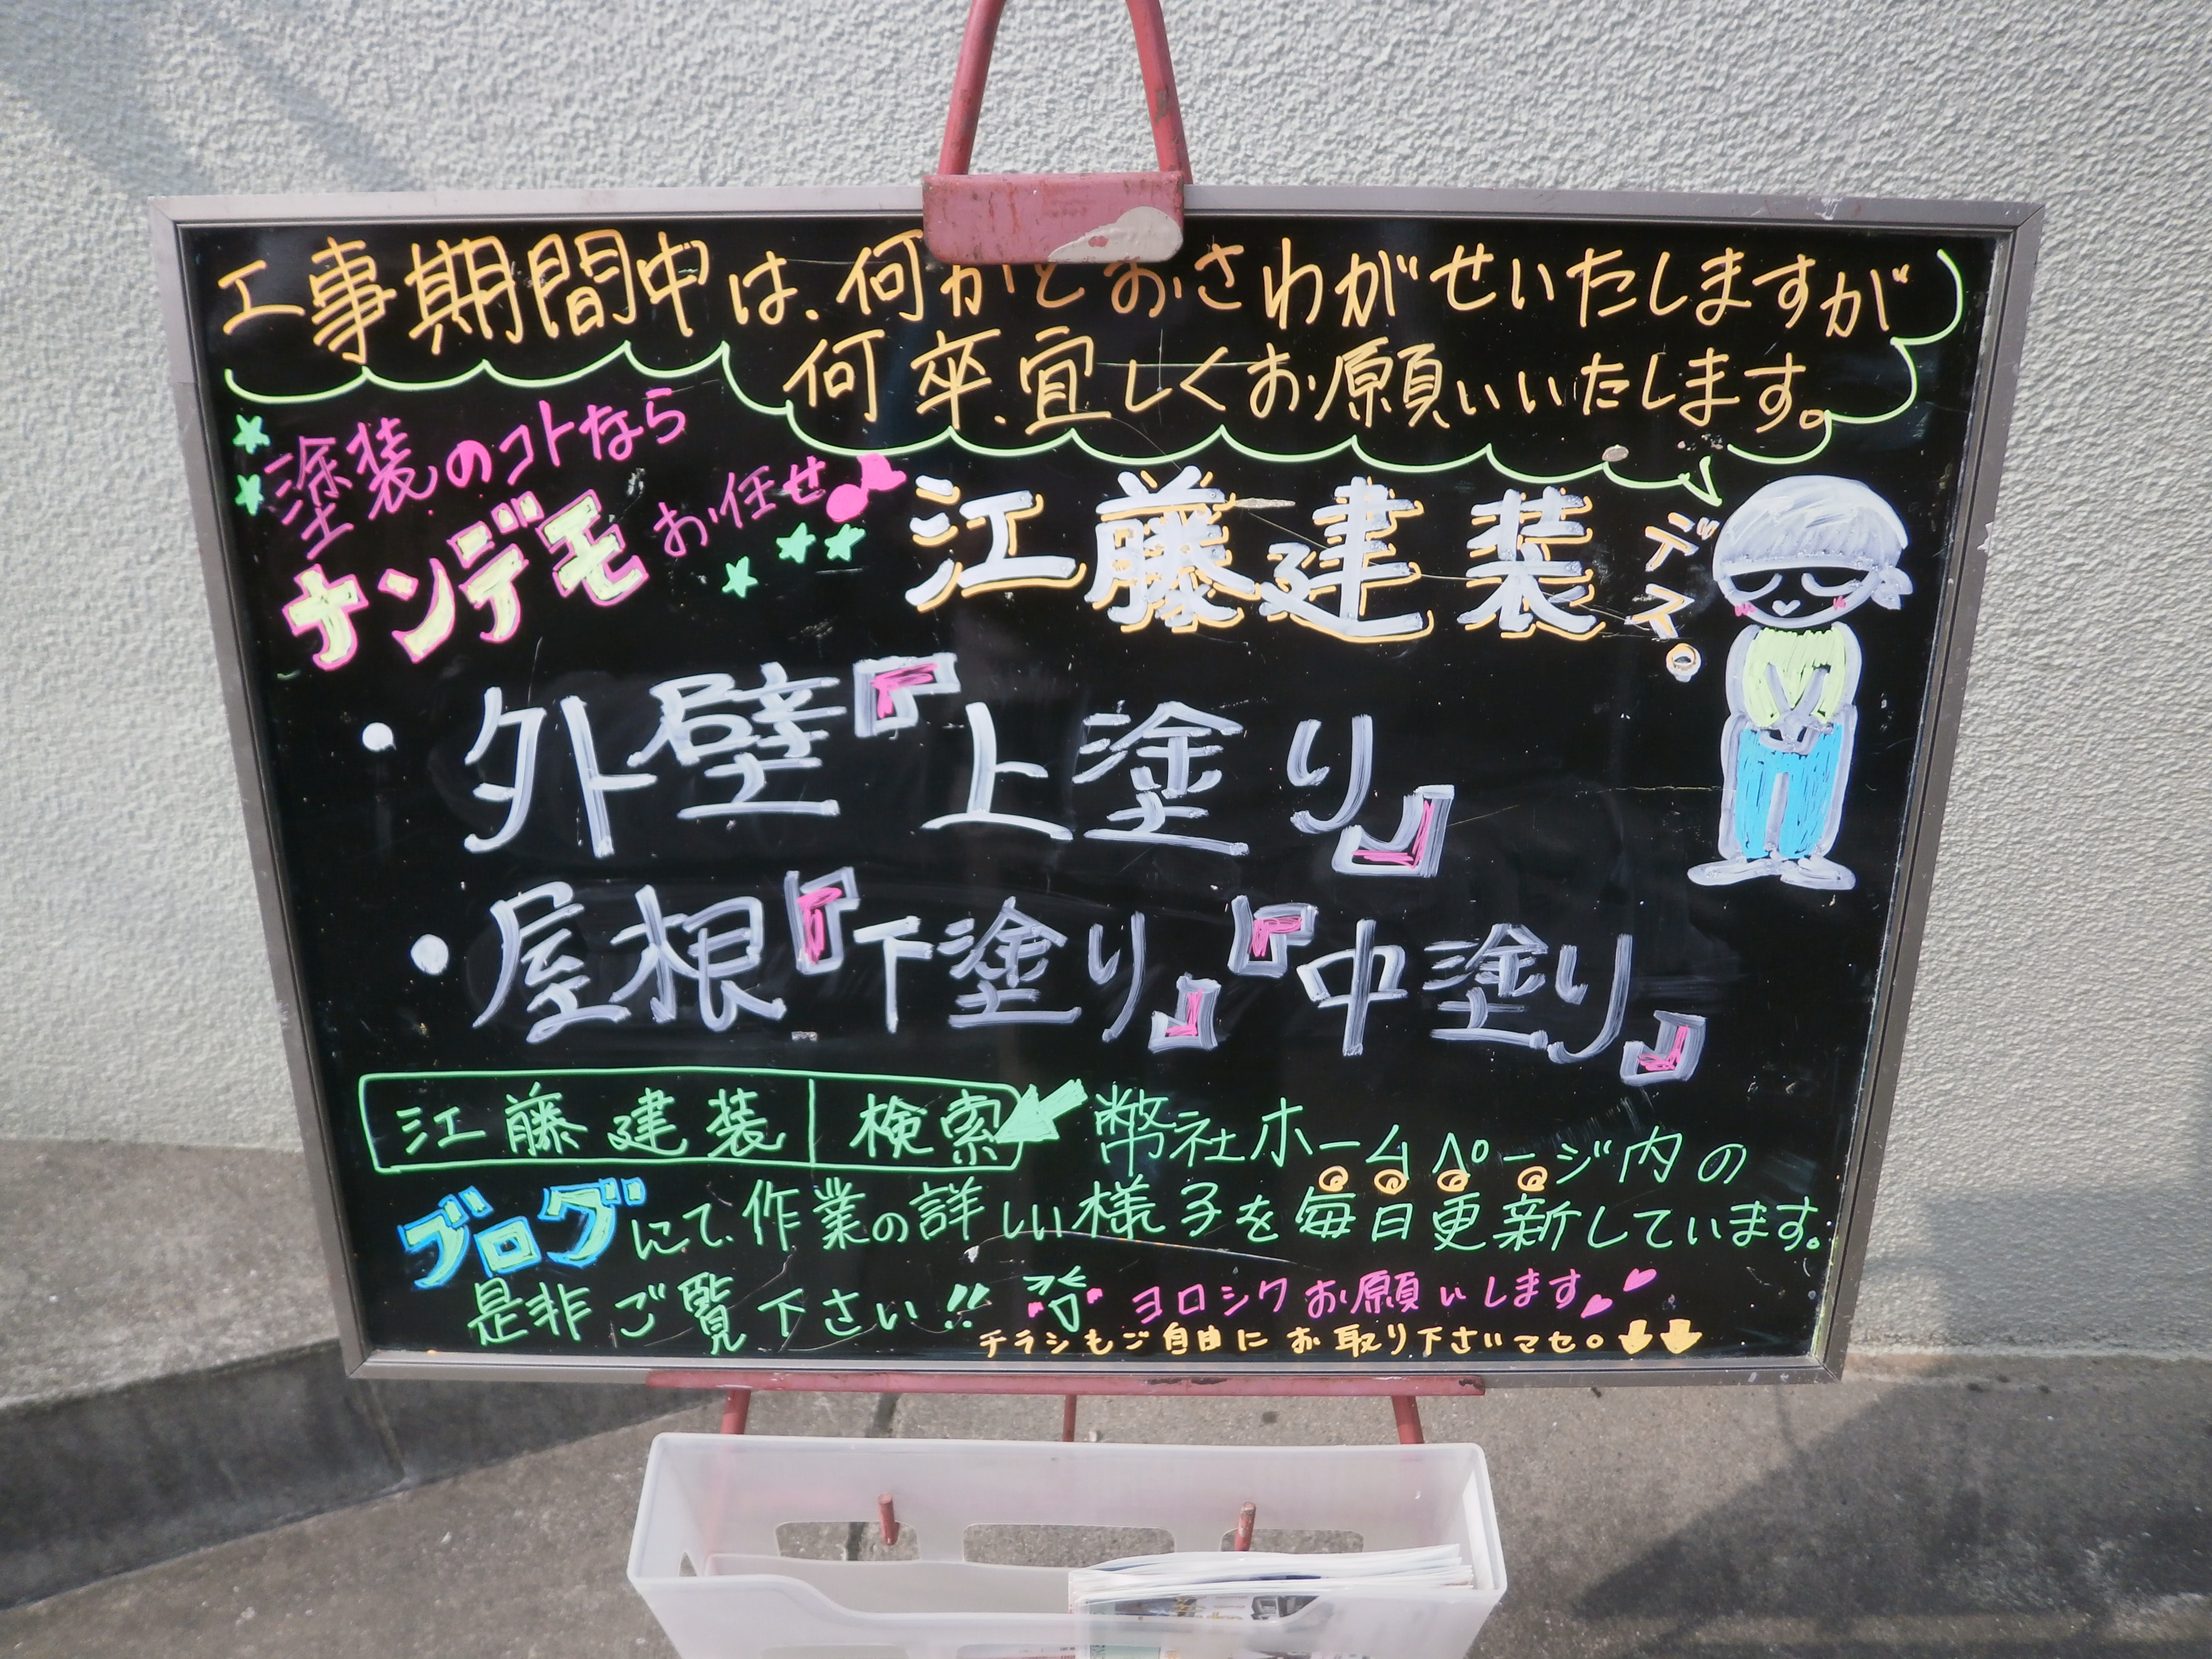 工事期間中は、何かとおさわがせいたしますが
何卒、宜しくお願いいたします。
塗装のコトなら
ナンデモお任せ♪
江藤建装デス。
・外壁『上塗り』
・屋根『下塗り』『中塗り』
江藤建装 検索 弊社ホームページ内の
ブログにて、作業の詳しい様子を毎日更新しています。
是非ご覧下さい!! ヨロシクお願いします
チラシもご自由にお取り下さいマセ。